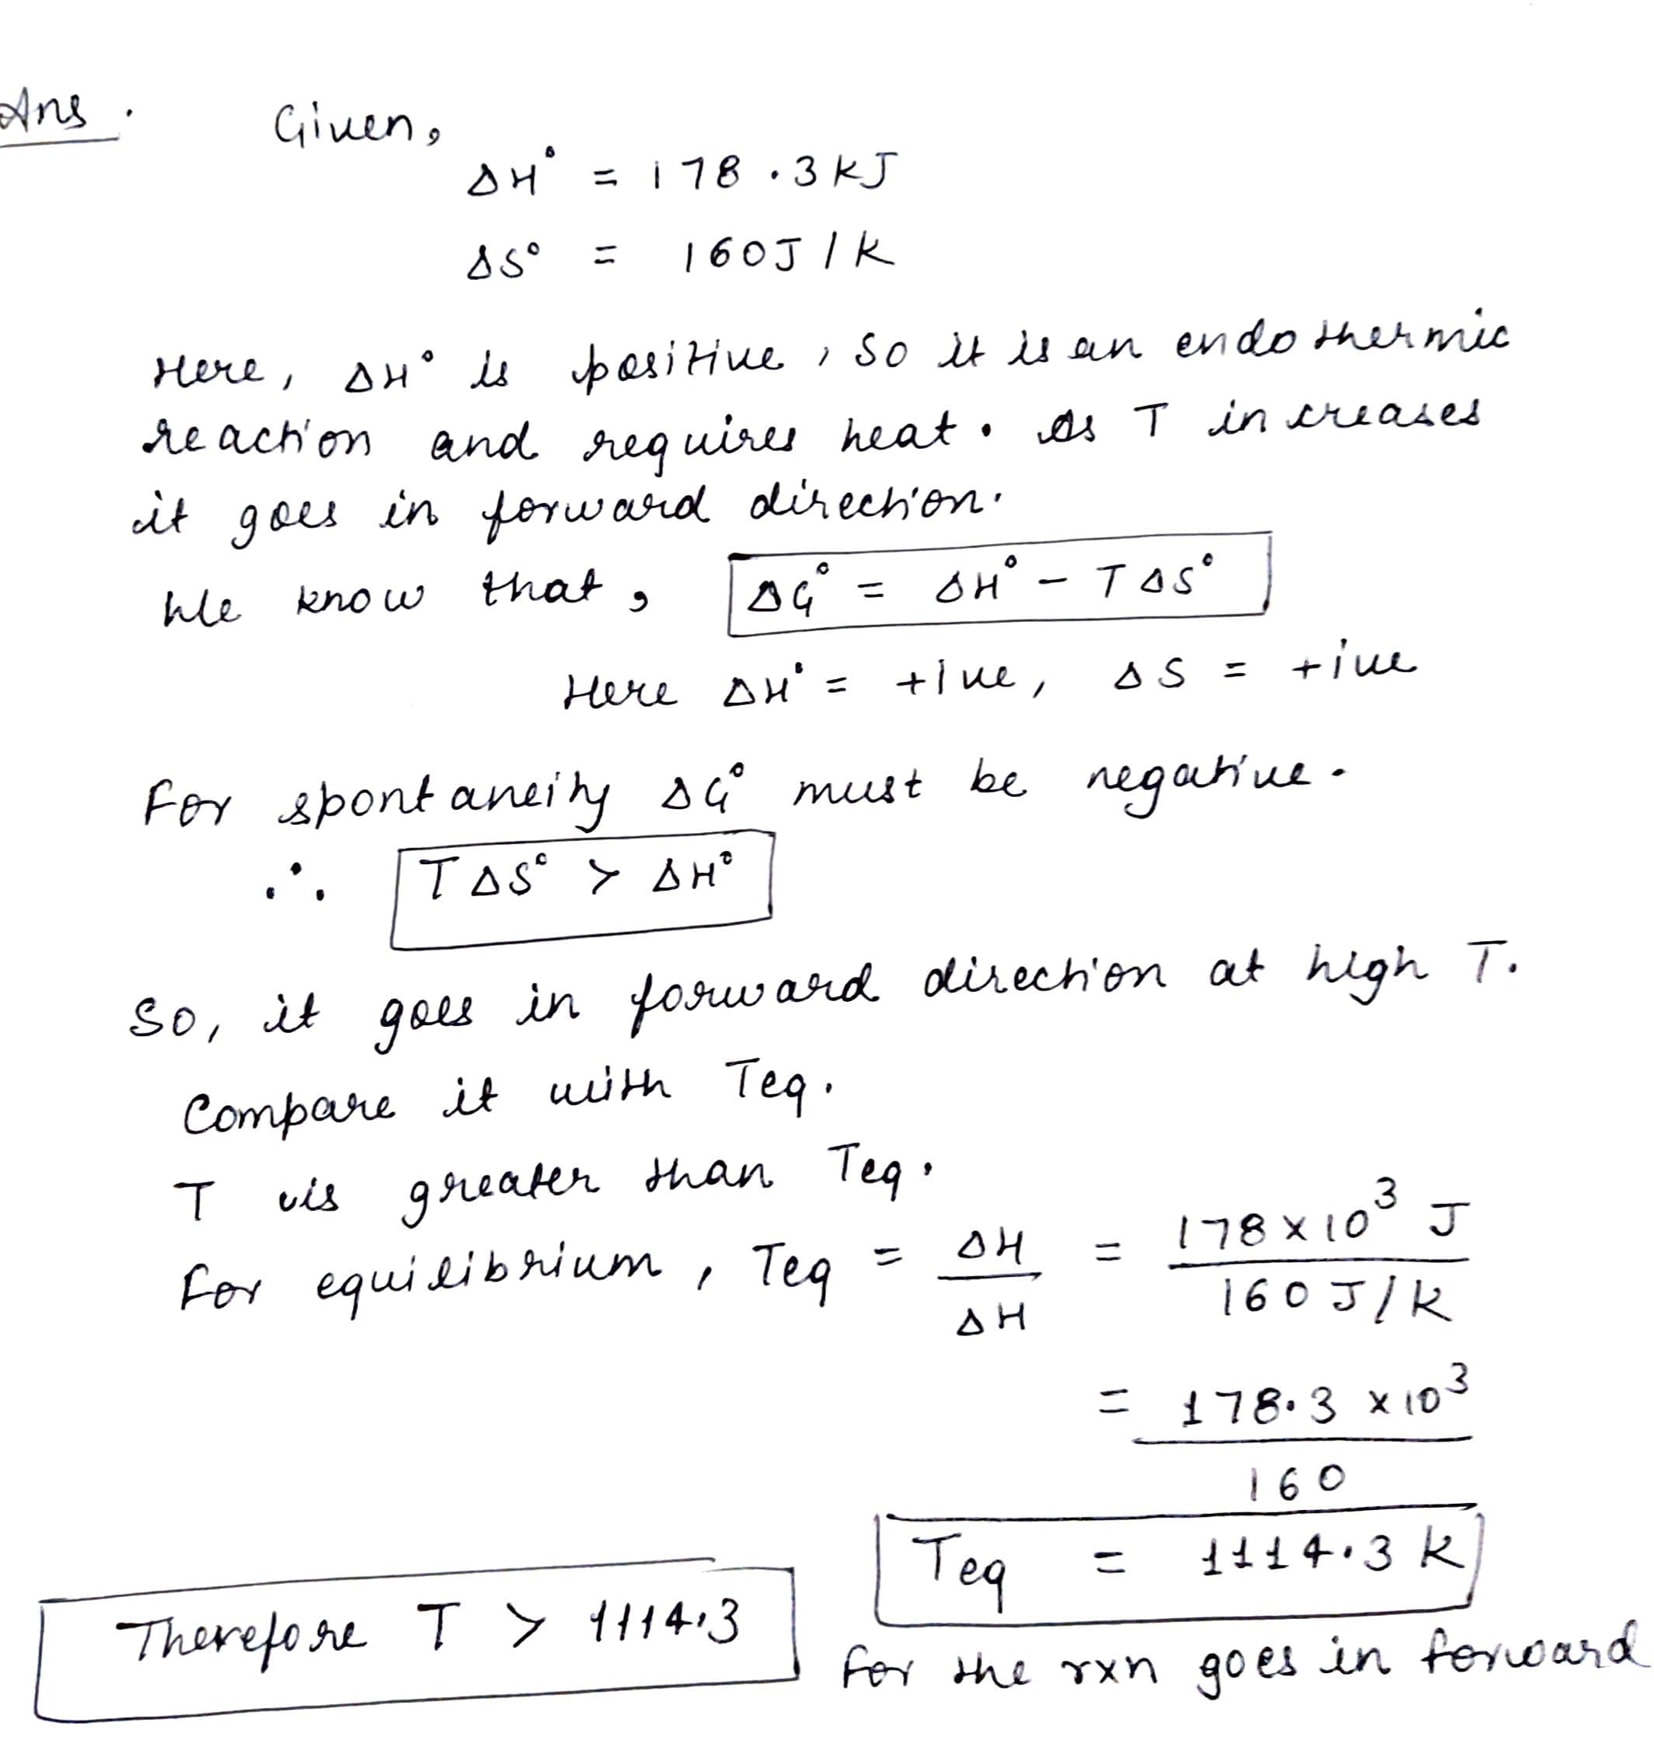 Ans.
Given,
ΔH° = 178.3 kJ
ΔS° = 160 J/K
Here, ΔH° is positive, so it is an endothermic
reaction and requires heat. As T increases
it goes in forward direction.
We know that, ΔG° = ΔH° - TΔS°
Here ΔH° = +ive, ΔS = +ive
For spontaneity ΔG° must be negative.
∴ TΔS° > ΔH°
So, it goes in forward direction at high T.
Compare it with Teq.
T is greater than Teq.
For equilibrium, Teq = ΔH/ΔH = 178×10³ J/160 J/K
= 178.3 ×10³/160
Teq = 1114.3 K
Therefore T > 1114.3
for the rxn goes in forward